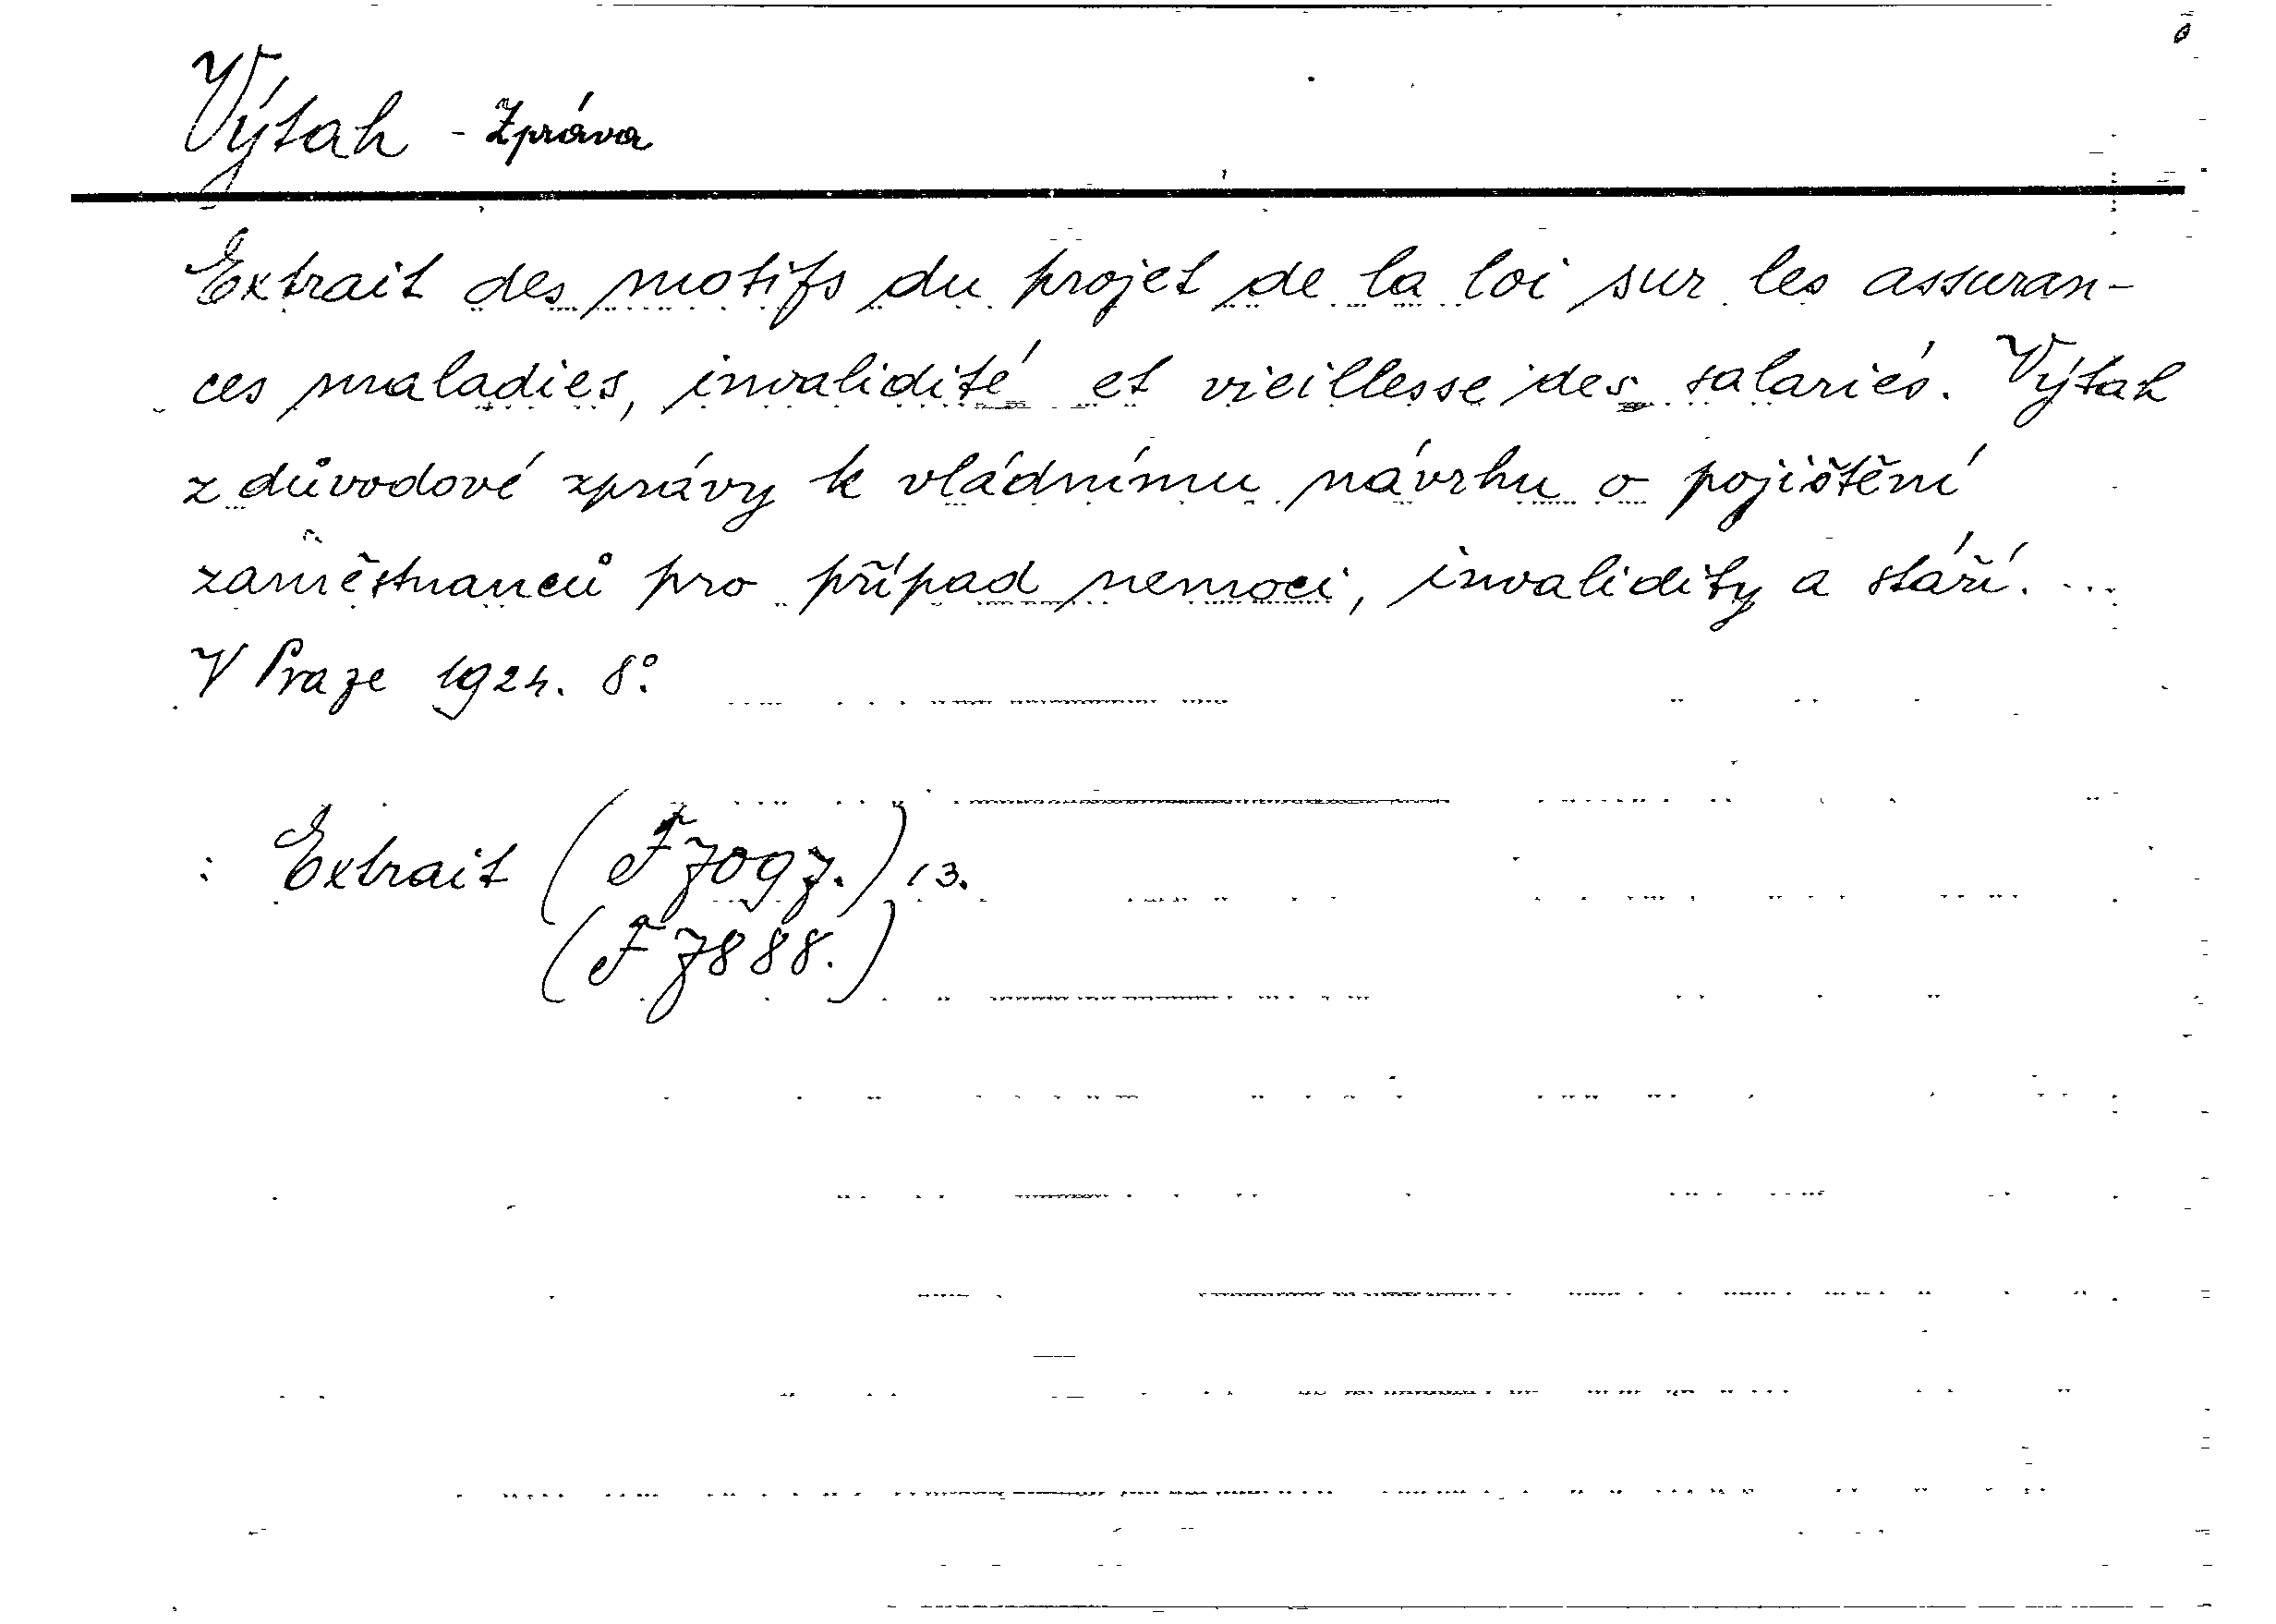 Výtah - Zpráva
Extrait des motifs du projet de la loi sur les assuran-
ces maladies, invalidité et vieillesse des salariés. Výtah
z důvodové zprávy k vládnímu návrhu o pojištění
zaměstnanců pro případ nemoci, invalidity a stáří. ...
V Praze 1924. 8°.
: Extrait (F 7097.) 13.
(F 7888.)